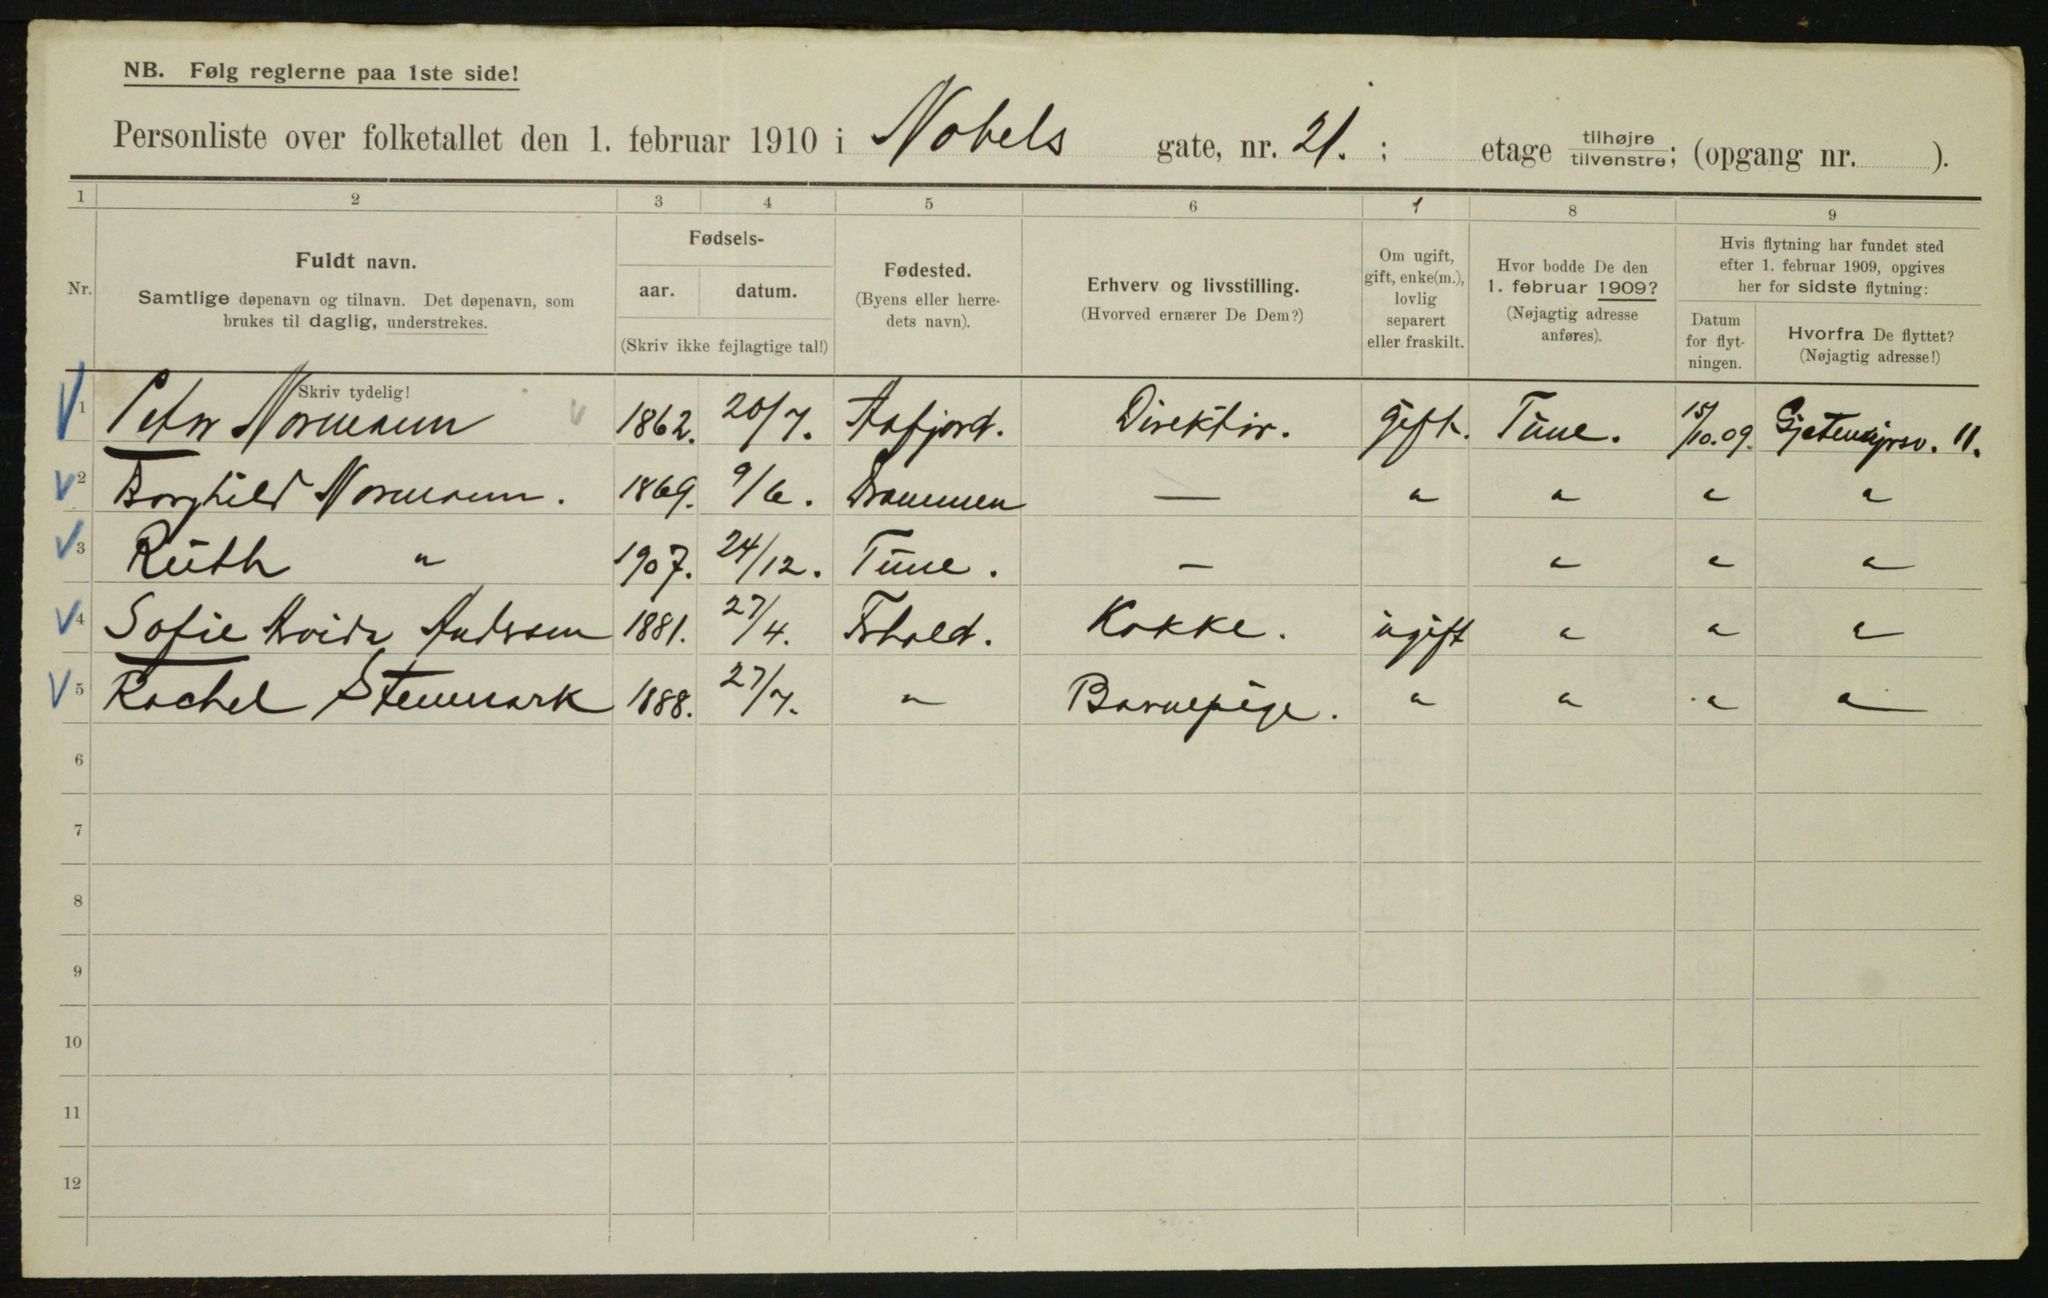 NB. Følg reglerne paa 1ste side!
Personliste over folketallet den 1. februar 1910 i Nobels gate, nr. 21. ; etage tilhøjre tilvenstre; (opgang nr. ).
1 2 3 4 5 6 1 8 9
Nr.
Fuldt navn.
Samtlige døpenavn og tilnavn. Det døpenavn, som
brukes til daglig, understrekes.
Fødsels-
aar. datum.
(Skriv ikke fejlagtige tal!)
Fødested.
(Byens eller herre-
dets navn).
Erhverv og livsstilling.
(Hvorved ernærer De Dem?)
Om ugift,
gift, enke(m.),
lovlig
separert
eller fraskilt.
Hvor bodde De den
1. februar 1909?
(Nøjagtig adresse
anføres).
Hvis flytning har fundet sted
efter 1. februar 1909, opgives
her for sidste flytning:
Datum
for flyt-
ningen.
Hvorfra De flyttet?
(Nøjagtig adresse!)
Skriv tydelig!
1 Peter Normann 1862. 20/7. Aafjord. Direktör. gift. Tune. 15/10.09. 11.
2 Borghild Normann. 1869. 9/6. Drammen — " " " "
3 Ruth " 1907. 24/12. Tune. — " " "
4 Sofie Andersen 1881. 27/4. Kokke. ugift " " "
5 Rachel Stenmark 1888. 27/7. " Barnepige. " " " "
6
7
8
9
10
11
12